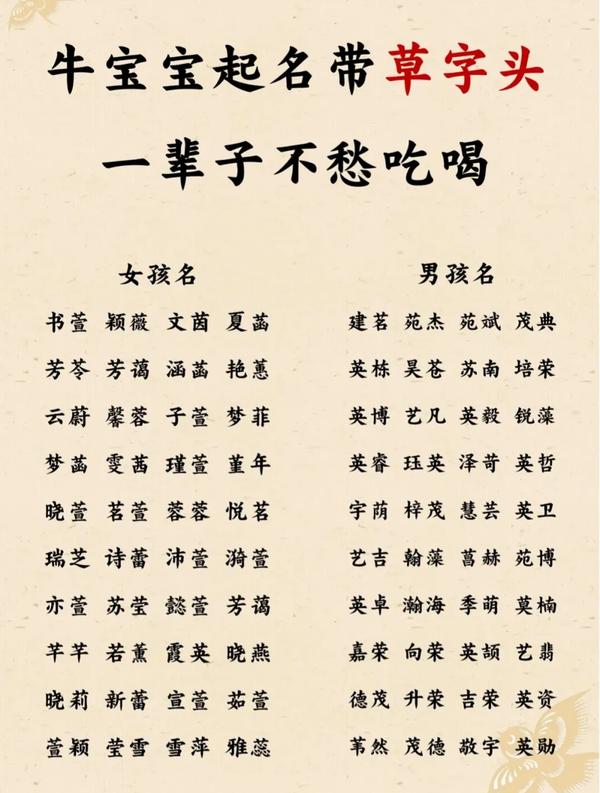 牛宝宝起名带草字头
一辈子不愁吃喝
女孩名
书萱 颖薇 文茵 夏菡
芳苓 芳蔼 涵菡 艳蕙
云蔚 馨蓉 子萱 梦菲
梦菡 雯茜 瑾萱 堇年
晓萱 茗萱 蓉蓉 悦茗
瑞芝 诗蕾 沛萱 漪萱
亦萱 苏莹 懿萱 芳蔼
芊芊 若薰 霞英 晓燕
晓莉 新蕾 宣萱 茹萱
萱颖 莹雪 雪萍 雅蕊
男孩名
建茗 苑杰 苑斌 茂典
英栋 昊苍 苏南 培荣
英博 艺凡 英毅 锐藻
英睿 珏英 泽苛 英哲
宇荫 梓茂 慧芸 英卫
艺吉 翰藻 菖赫 苑博
英卓 瀚海 季萌 莫楠
嘉荣 向荣 英颉 艺翡
德茂 升荣 吉荣 英资
苇然 茂德 敬宇 英勋